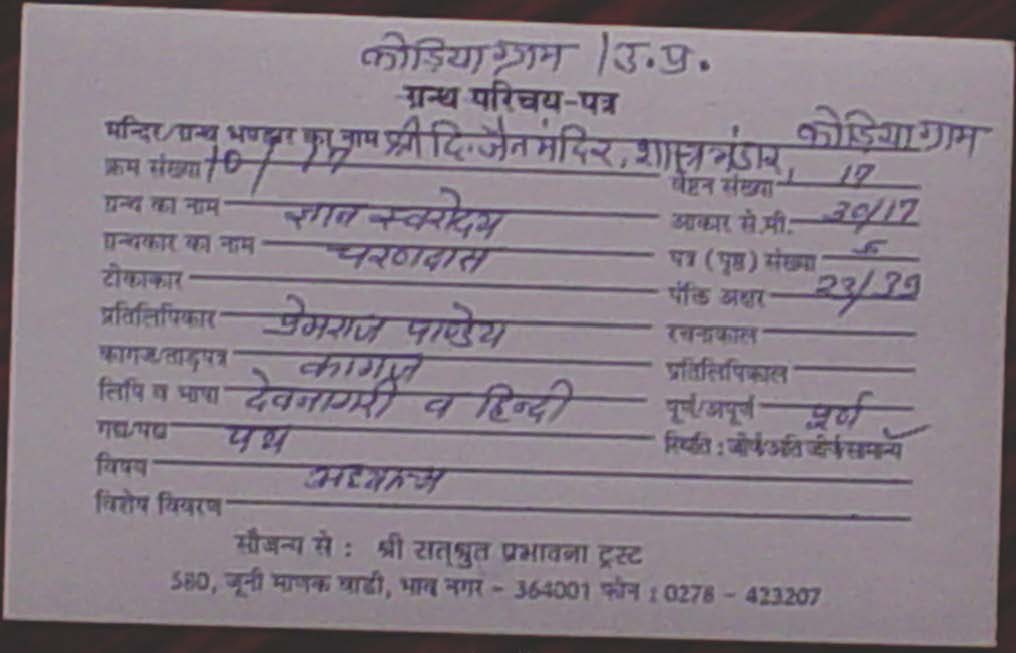 कोडिया ग्राम / उ.प्र.
ग्रन्थ परिचय-पत्र
मन्दिर/ग्रन्थ भण्डार का नाम श्री दि. जैन मंदिर, शास्त्र भंडार, कोडिया ग्राम
क्रम संख्या 10/17 वेष्टन संख्या 17
ग्रन्थ का नाम ज्ञान स्वरोदय आकार से.मी. 30/17
ग्रन्थकार का नाम चरणदास पत्र (पृष्ठ) संख्या
टीकाकार पंक्ति अक्षर 23/39
प्रतिलिपिकार प्रेमराज पाण्डेय रचनाकाल
कागज/ताड़पत्र कागज़ प्रतिलिपिकाल
लिपि व भाषा देवनागरी व हिन्दी पूर्ण/अपूर्ण पूर्ण
गद्य/पद्य पद्य स्थिति : जीर्ण/अति जीर्ण/सामान्य
विषय
विशेष विवरण
सौजन्य से : श्री सत्श्रुत प्रभावना ट्रस्ट
580, जूनी माणक वाडी, भाव नगर - 364001 फोन : 0278 - 423207